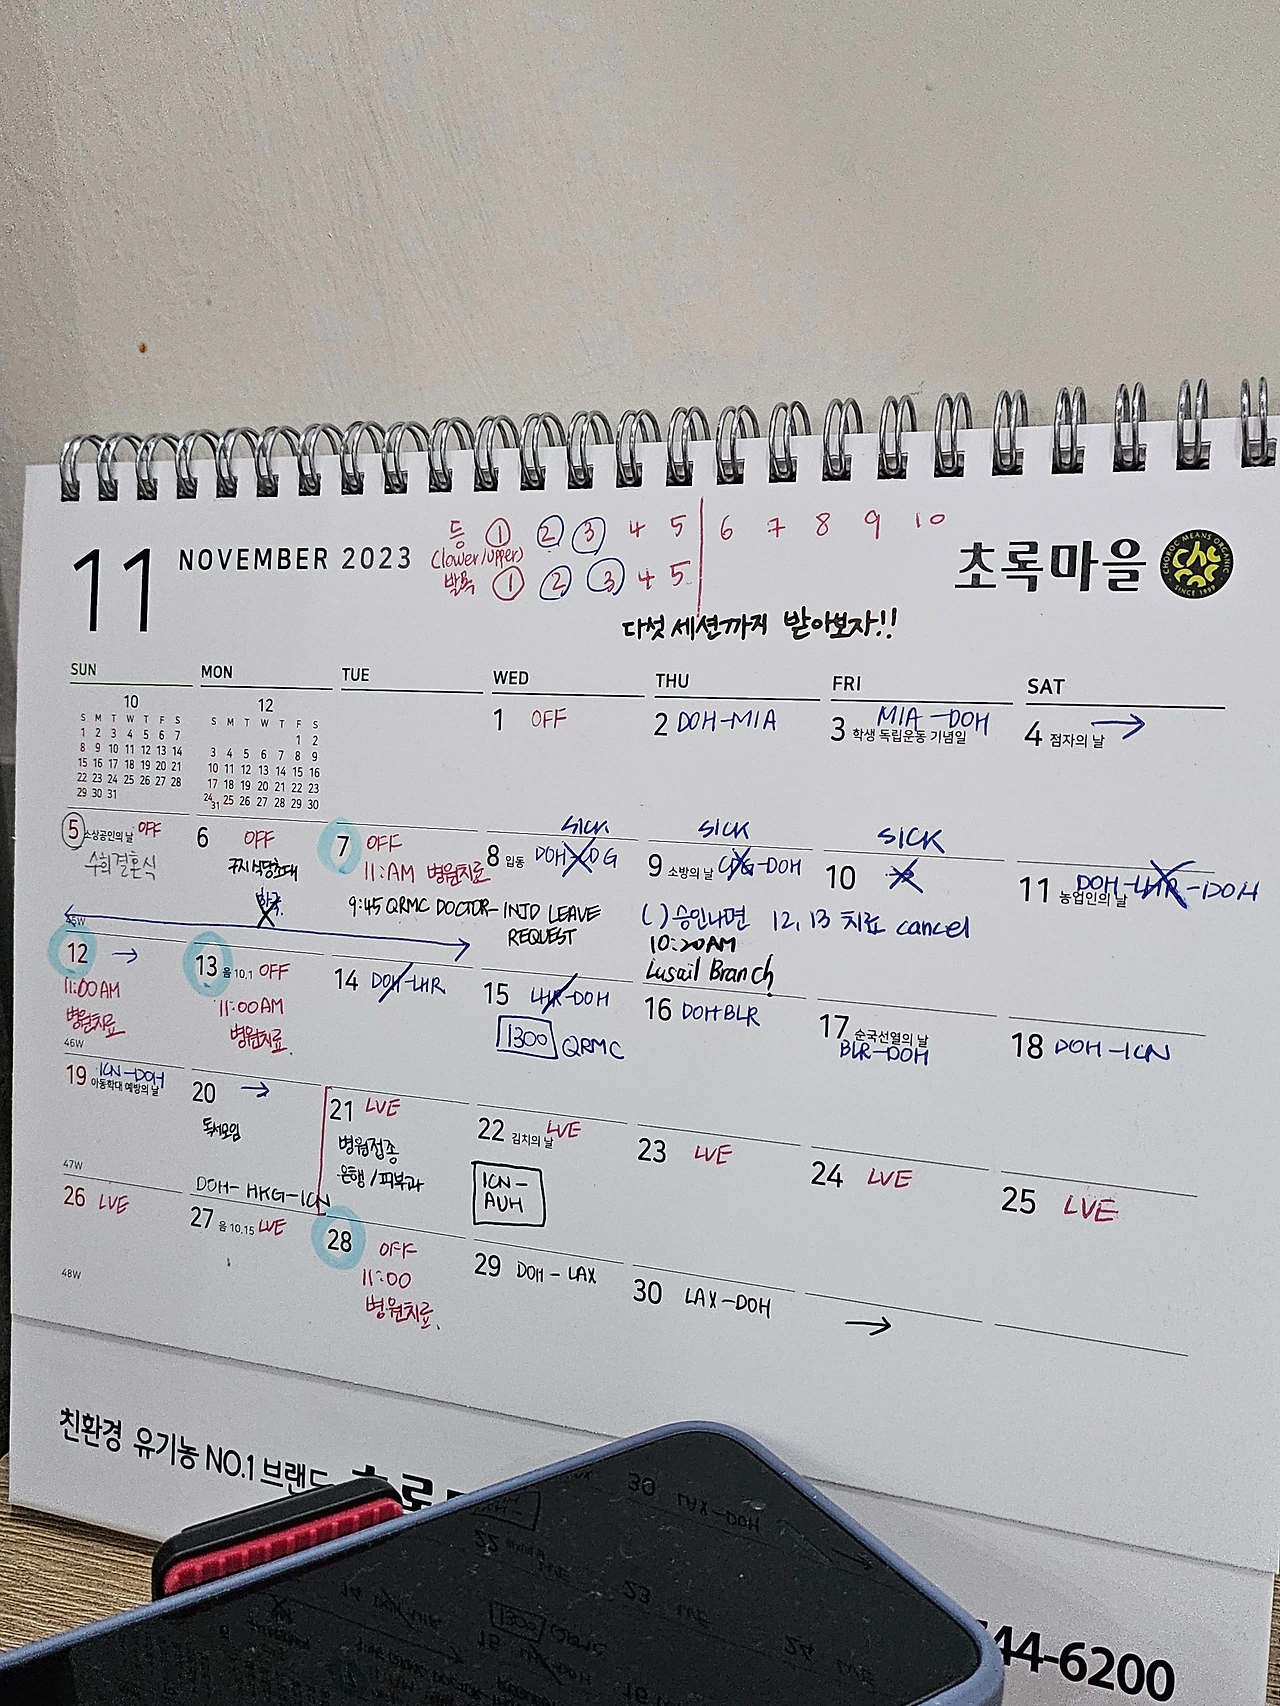 등 1 2 3 4 5 6 7 8 9 10
(lower/upper)
발목 1 2 3 4 5
다섯 세션까지 받아보자!!
11 NOVEMBER 2023
초록마을
CHOROC MEANS ORGANIC
SINCE 1999
SUN MON TUE WED THU FRI SAT
10
S M T W T F S
1 2 3 4 5 6 7
8 9 10 11 12 13 14
15 16 17 18 19 20 21
22 23 24 25 26 27 28
29 30 31
12
S M T W T F S
1 2
3 4 5 6 7 8 9
10 11 12 13 14 15 16
17 18 19 20 21 22 23
24 31 25 26 27 28 29 30
1 OFF
2 DOH-MIA
3 학생 독립운동 기념일
MIA-DOH
4 점자의 날 →
5 소상공인의 날 OFF
수희결혼식
6 OFF
7 OFF
11:AM 병원치료
9:45 QRMC DOCTOR-INJD LEAVE
REQUEST
SICK
8 입동 DOH-CDG
SICK
9 소방의 날 CDG-DOH
( ) 승인나면 12, 13 치료 cancel
10:20AM
Lusail Branch
SICK
10
11 농업인의 날
DOH-LHR-DOH
45W
12 →
11:00AM
병원치료
13 음 10.1 OFF
11:00AM
병원치료.
14 DOH-LHR
15 LHR-DOH
1300 QRMC
16 DOHBLR
17 순국선열의 날
BLR-DOH
18 DOH-ICN
46W
19 ICN-DOH
아동학대 예방의 날
20 →
독서모임
DOH-HKG-ICN
21 LVE
병원접종
은행/피부과
22 김치의 날 LVE
ICN-
AUH
23 LVE
24 LVE
25 LVE
47W
26 LVE
27 음 10.15 LVE
28 OFF
11:00
병원치료.
29 DOH-LAX
30 LAX-DOH
→
48W
친환경 유기농 NO.1 브랜드
44-6200